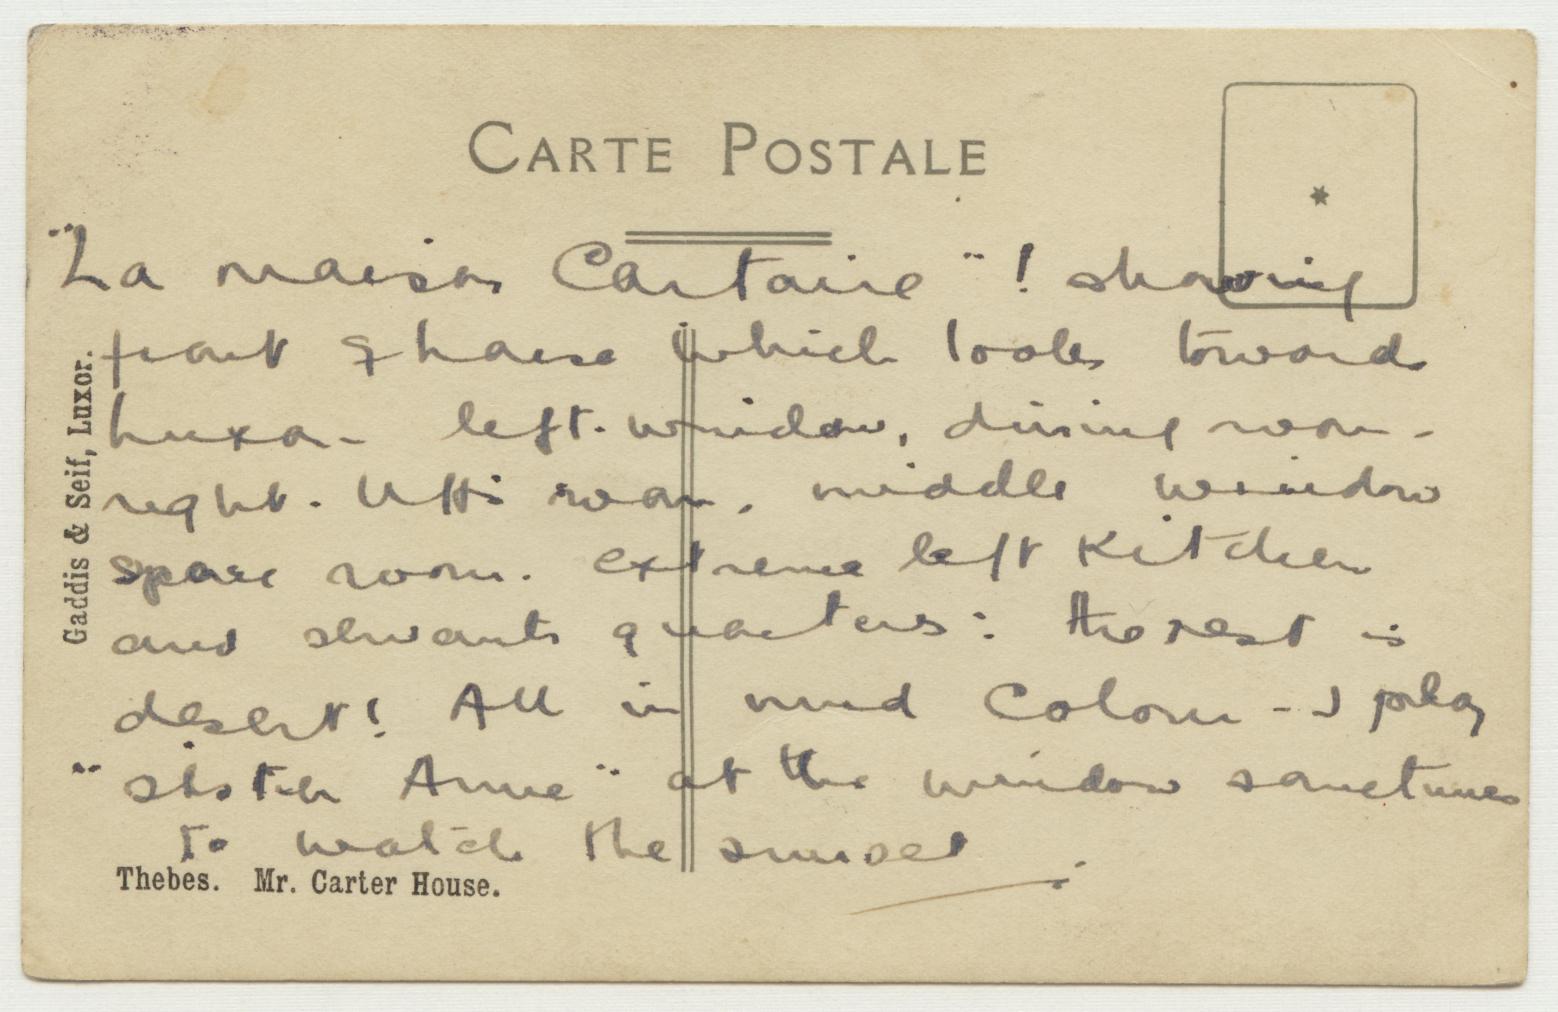 CARTE POSTALE
"La maison Cartaire"! showing
front of house which looks toward
Luxor - left window, dining room -
right. sitting room, middle window
spare room. extreme left Kitchen
and servants quarters: the rest is
desert! All in mud Colour - I play
"sister Anne" at the window sometimes
to watch the sunset.
Thebes. Mr. Carter House.
Gaddis & Seif, Luxor.